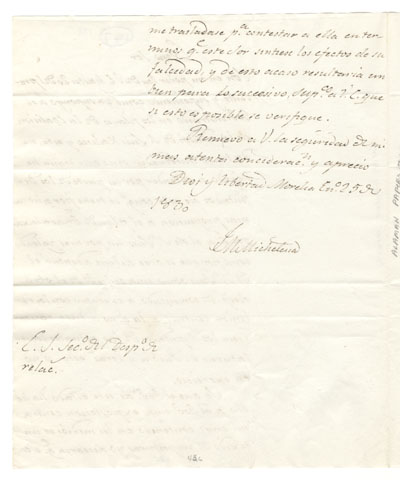 me trasladase pa. contestar a ella en ter
minos qe. este Sor sintiera los efectos de su
falcedad, y de esto acaso resultaria un
bien para lo succesivo, a V.E. que
si esto es posible se verifique.
Renuevo a V. la seguridad de mi
atenta consideracn. y aprecio
Dios y libertad Morelia Eno. 25 de
1830
Michelena
E. S. Seco. del Despo. de
relac.
ALAMAN PAPERS